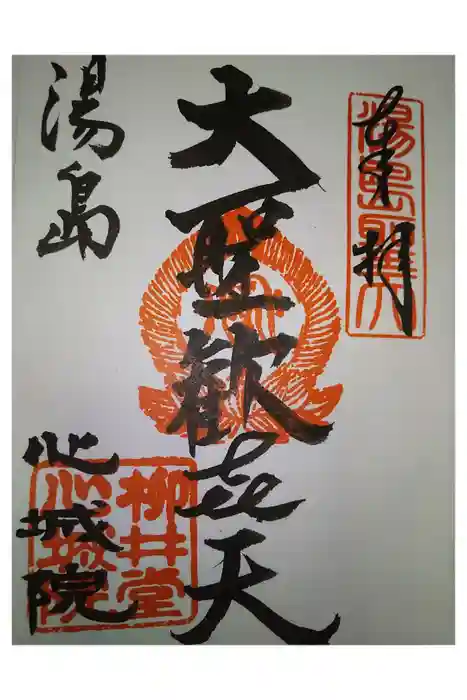 奉拝
湯島聖天
大聖歓㐂天
湯島
心城院
柳井堂
心城院